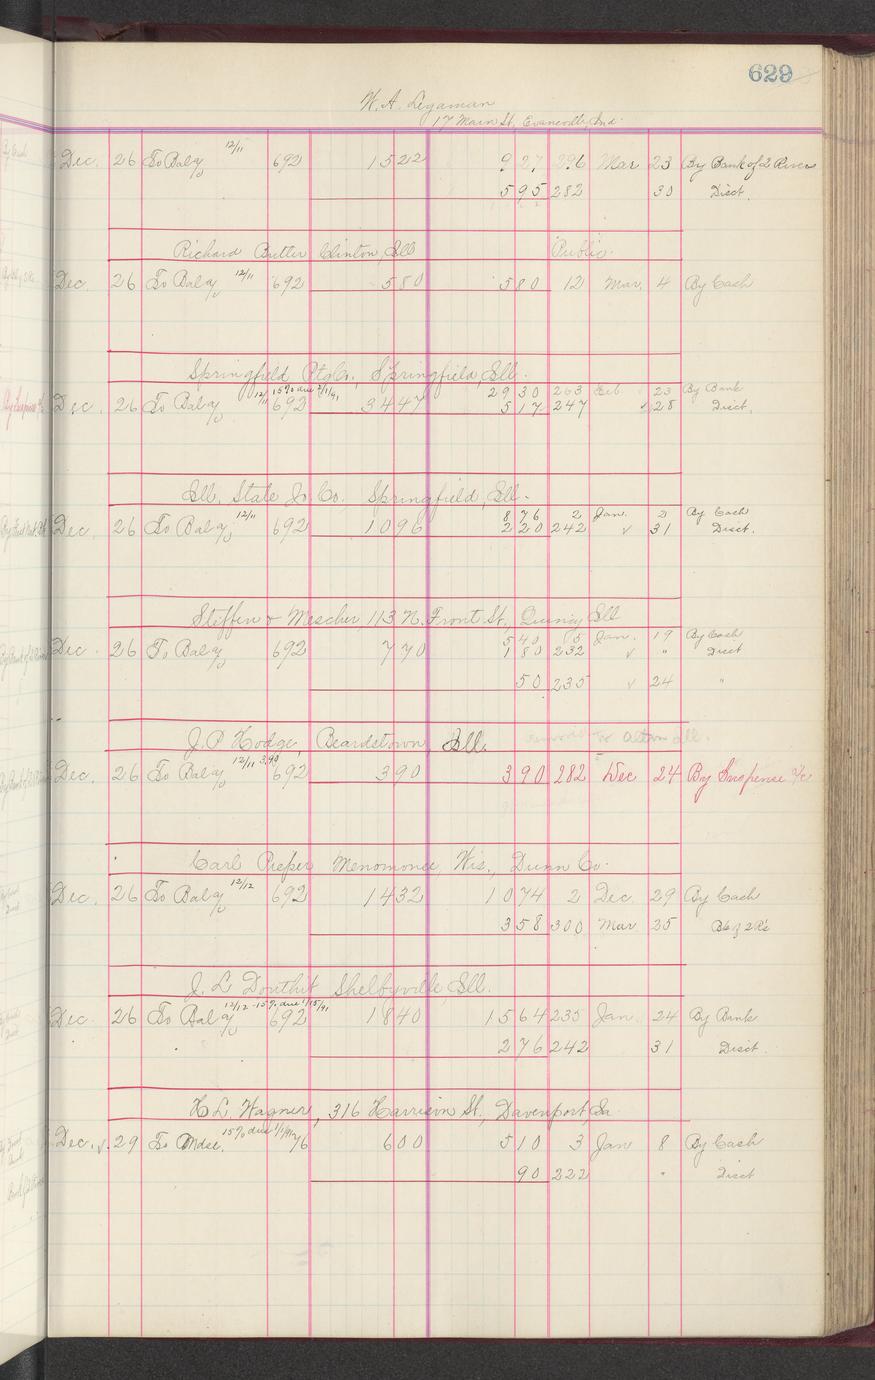 629
W. A.
17 Main St., Evansville, Ind.
Dec. 26 To Bal 12/11 692 1522 9 27 296 Mar 23 By Bank of 2 Rivers
5 95 282 30 Disct.
Richard Butler Clinton, Ill Public.
Dec. 26 To Bal 12/11 692 580 5 80 12 Mar. 4 By Cash
Springfield Ptg Co., Springfield, Ill.
12/11 15% due 2/1/91 29 30 263 Feb. 23 By Bank
Dec. 26 To Bal 692 3447 5 17 247 28 Disct.
Ill. State Jo. Co. Springfield, Ill.
8 76 2 Jan. 2 By Cash
Dec. 26 To Bal 12/11 692 1096 2 20 242 ✓ 31 Disct.
Steffen & Mescher, 113 N. Front St., Quincy Ill
5 40 15 Jan. 19 By Cash
Dec. 26 To Bal 692 770 1 80 232 ✓ " Disct
50 235 ✓ 24 "
J. P. Hodge, Beardstown, Ill. removed to Alton Ill.
Dec. 26 To Bal 12/11 3.90 692 390 3 90 282 Dec 24 By Suspense a/c
Carl Pieper Menomonee, Wis., Dunn Co.
Dec. 26 To Bal 12/12 692 1432 10 74 2 Dec. 29 By Cash
3 58 300 Mar 25 Bk of 2 R's
J. L. Douthit Shelbyville, Ill.
Dec. 26 To Bal 12/12 15% due 1/15/91 692 1840 15 64 235 Jan 24 By Bank
2 76 242 31 Disct.
H. L. Wagner, 316 Harrison St., Davenport, Ia.
Dec. 29 To Mdse. 15% due 1/1/91 76 600 5 10 3 Jan 8 By Cash
90 222 " Disct